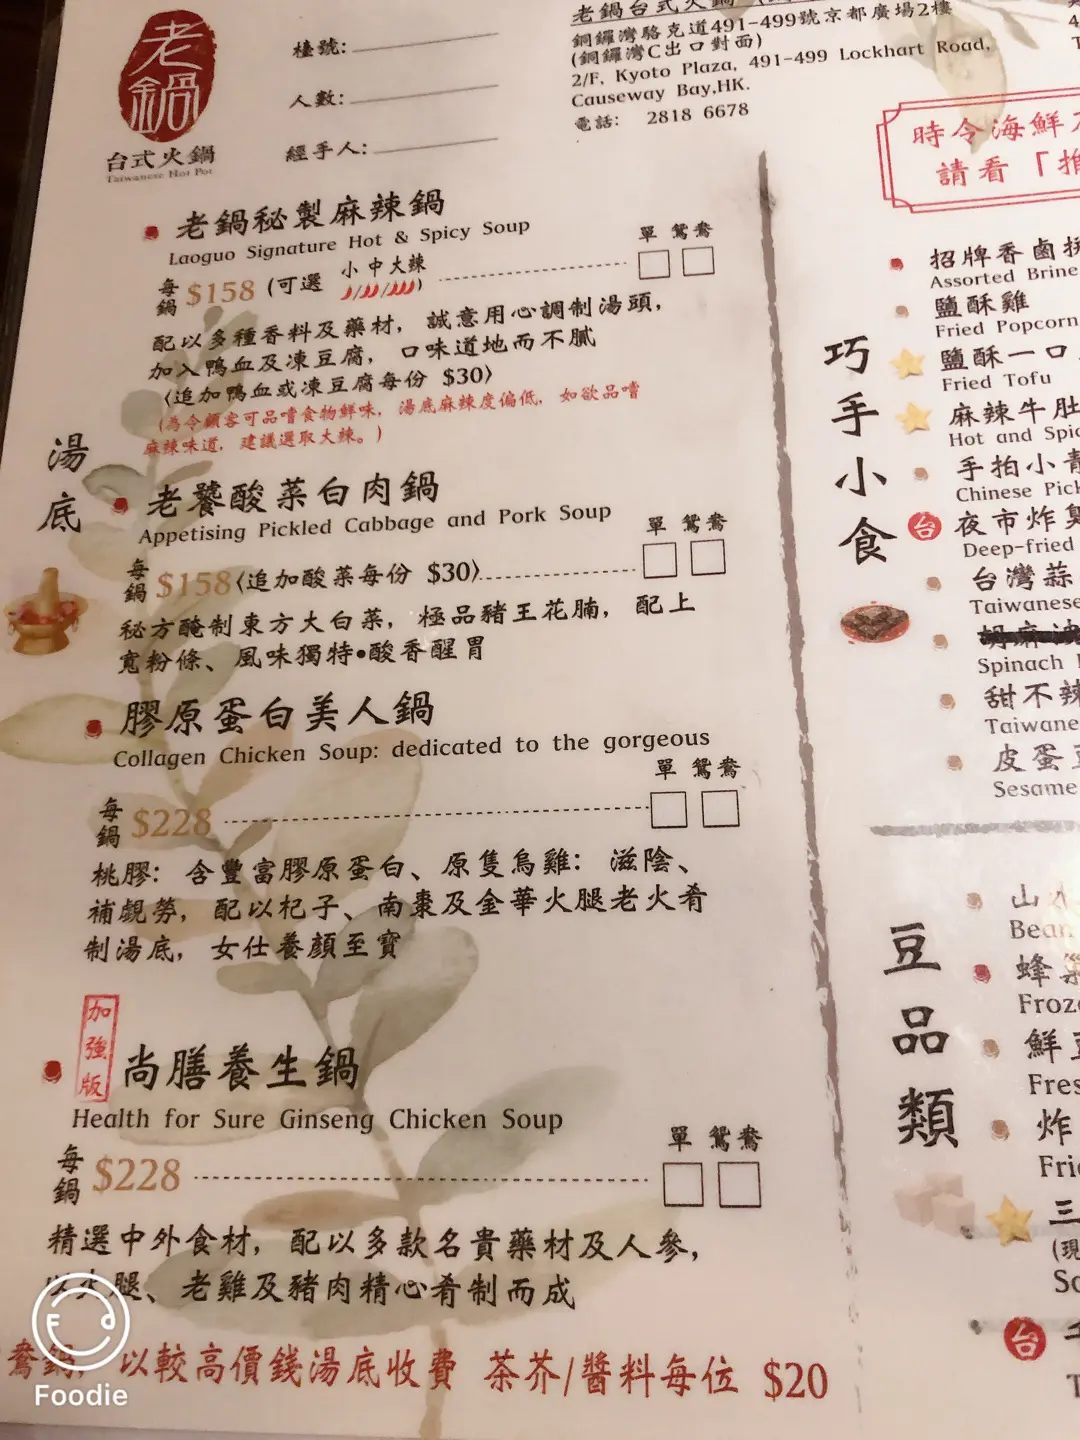 老鍋
台式火鍋
Taiwanese Hot Pot
檯號:
人數:
經手人:
老鍋台式火鍋
銅鑼灣駱克道491-499號京都廣場2樓
(銅鑼灣C出口對面)
2/F, Kyoto Plaza, 491-499 Lockhart Road,
Causeway Bay,HK.
電話: 2818 6678
時令海鮮
請看「推
湯底
老鍋秘製麻辣鍋
Laoguo Signature Hot & Spicy Soup
單 鴛鴦
每鍋 $158 (可選 小中大辣)
配以多種香料及藥材, 誠意用心調制湯頭,
加入鴨血及凍豆腐, 口味道地而不膩
〈追加鴨血或凍豆腐每份 $30〉
(為令顧客可品嚐食物鮮味, 湯底麻辣度偏低, 如欲品嚐
麻辣味道, 建議選取大辣。)
老饕酸菜白肉鍋
Appetising Pickled Cabbage and Pork Soup
單 鴛鴦
每鍋 $158〈追加酸菜每份 $30〉
秘方醃制東方大白菜, 極品豬王花腩, 配上
寬粉條、風味獨特•酸香醒胃
膠原蛋白美人鍋
Collagen Chicken Soup: dedicated to the gorgeous
單 鴛鴦
每鍋 $228
桃膠: 含豐富膠原蛋白、原隻烏雞: 滋陰、
補覷勞, 配以杞子、南棗及金華火腿老火肴
制湯底, 女仕養顏至寶
加強版
尚膳養生鍋
Health for Sure Ginseng Chicken Soup
單 鴛鴦
每鍋 $228
精選中外食材, 配以多款名貴藥材及人參,
以火腿、老雞及豬肉精心肴制而成
鴦鍋, 以較高價錢湯底收費 茶芥/醬料每位 $20
巧手小食
招牌香鹵拼
Assorted Brine
鹽酥雞
Fried Popcorn
鹽酥一口
Fried Tofu
麻辣牛肚
Hot and Spic
手拍小青
Chinese Pick
台 夜市炸臭
Deep-fried
台灣蒜
Taiwanese
Spinach
甜不辣
Taiwane
皮蛋豆
Sesame
豆品類
山水
Bean
蜂巢
Froze
鮮豆
Fres
炸
Frie
三
(現
So
台
Foodie